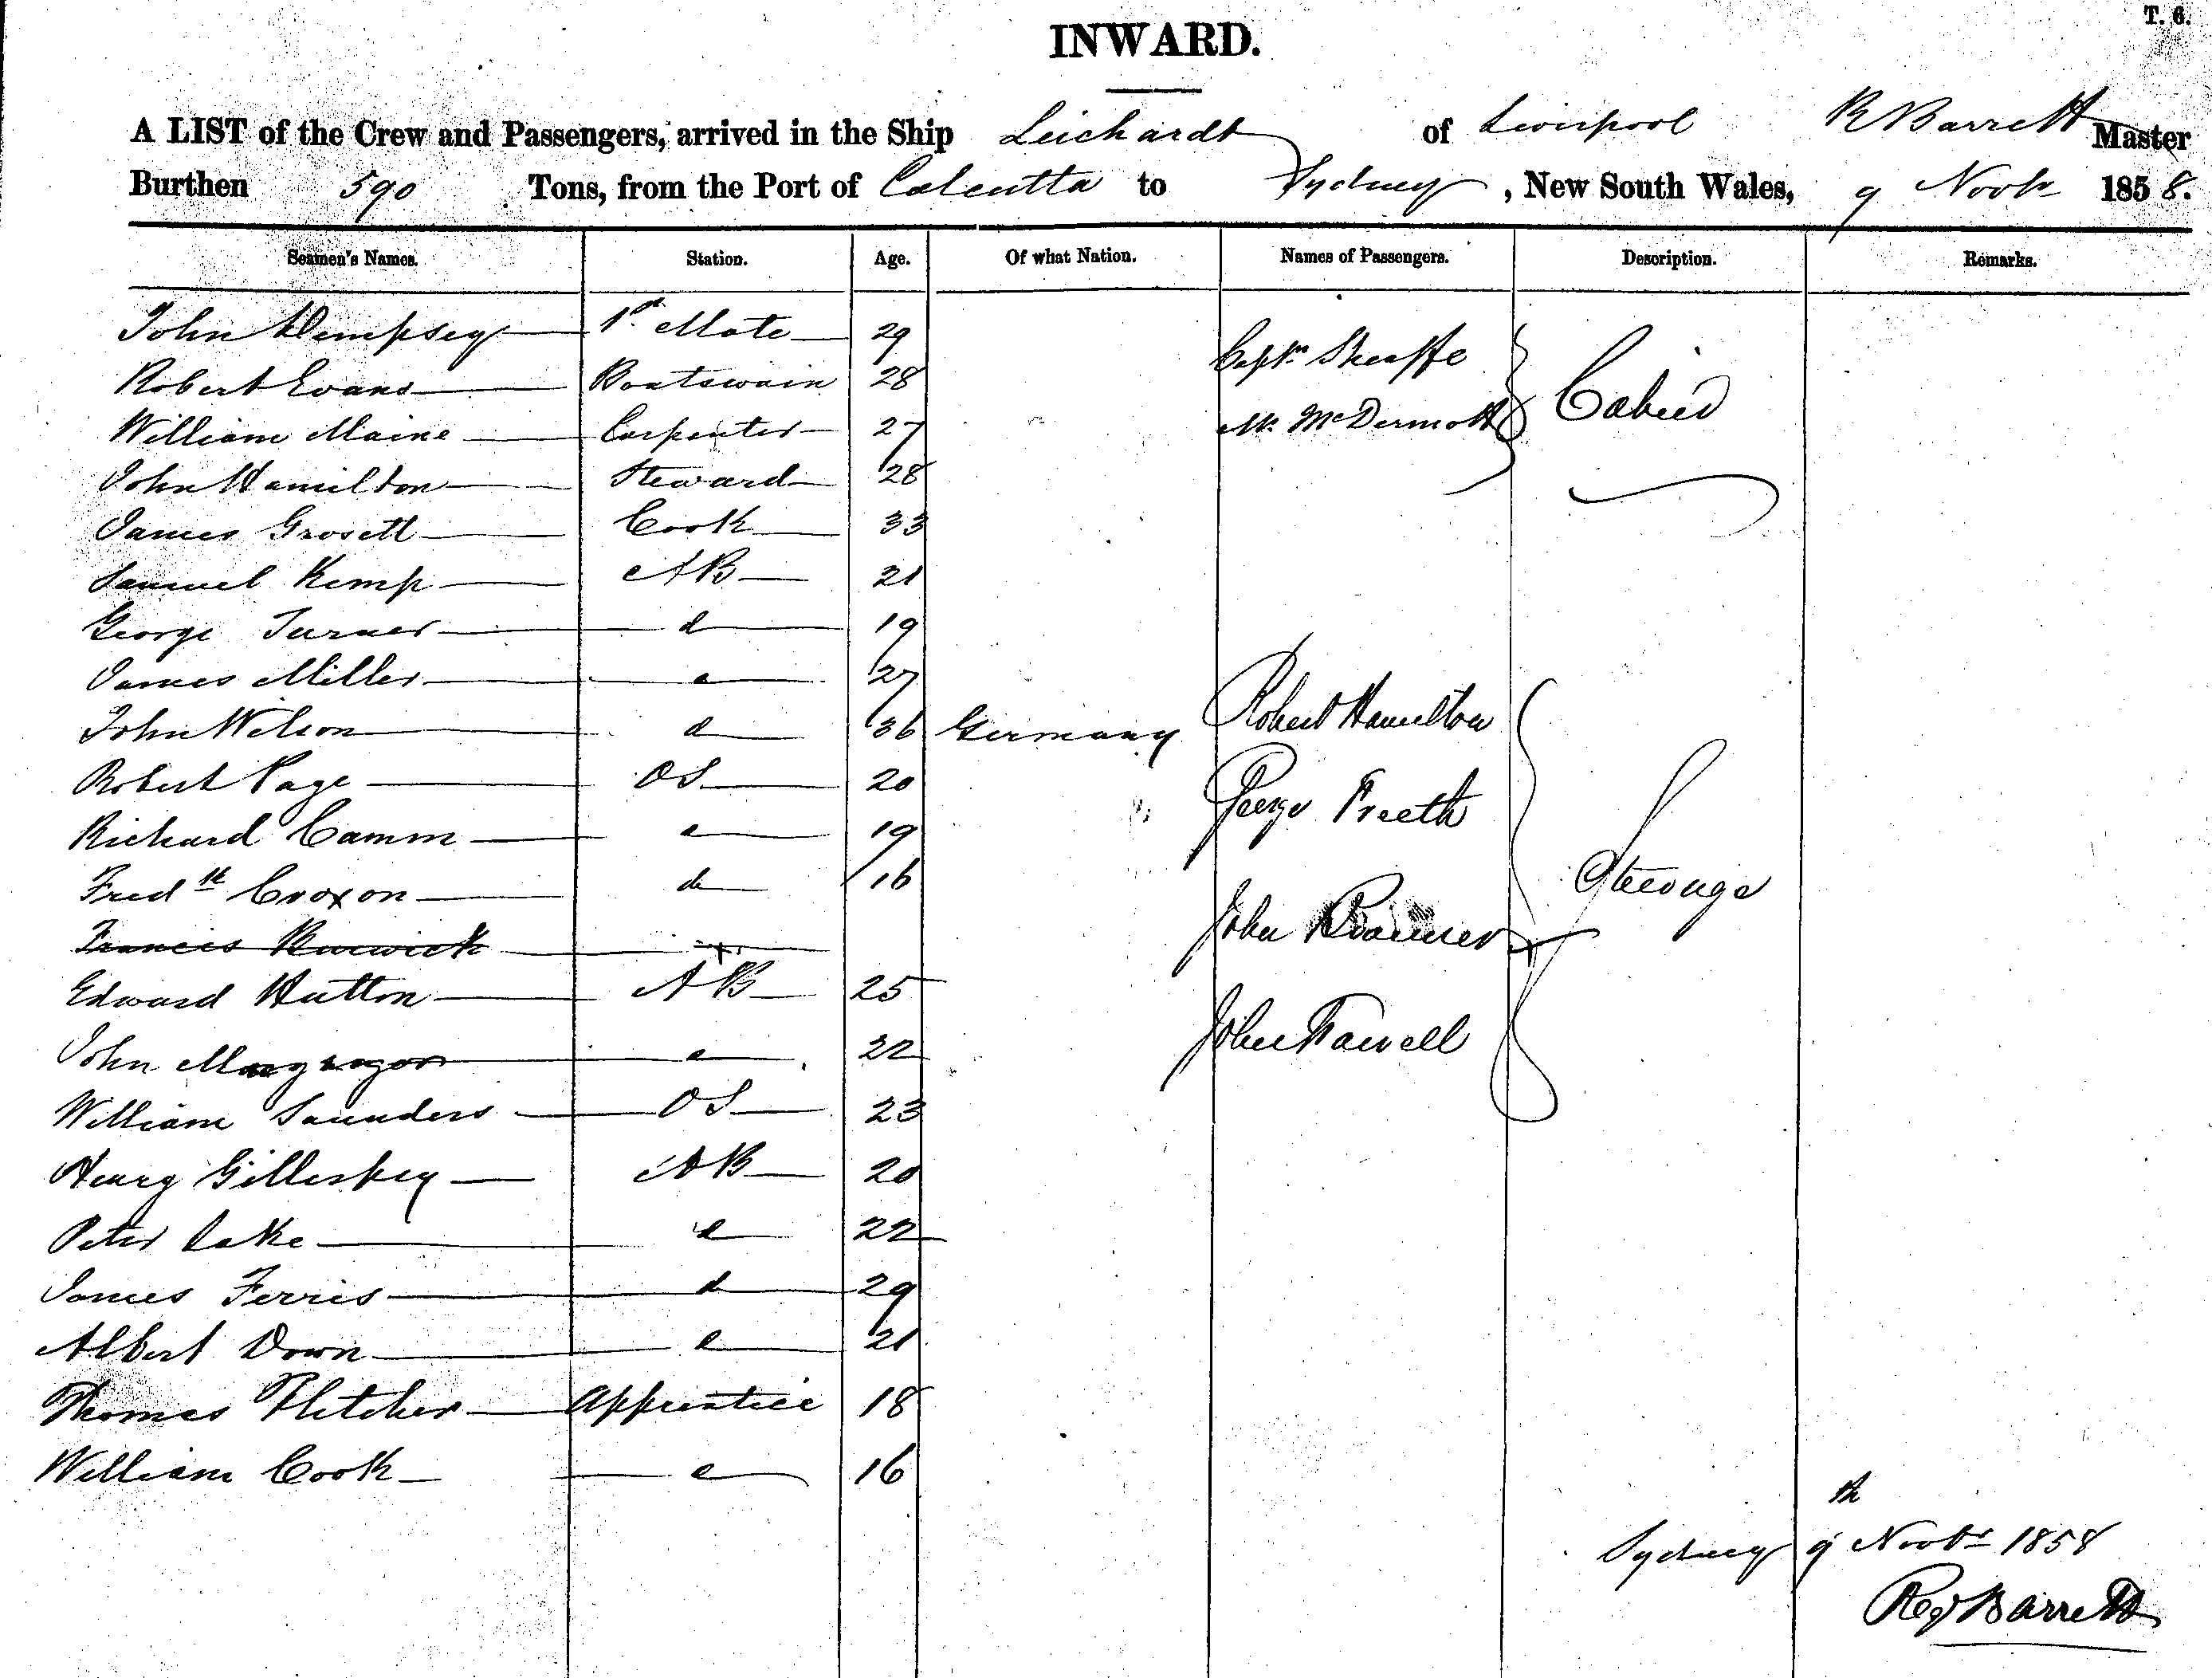 T. 6.
INWARD.
A LIST of the Crew and Passengers, arrived in the Ship Leichardt of Liverpool R Barrett Master
Burthen 590 Tons, from the Port of Calcutta to Sydney, New South Wales, 9 Novbr 1858.
Seamen's Names. Station. Age. Of what Nation. Names of Passengers. Description. Remarks.
John Dempsey 1st Mate 29
Captn Sheaffe
Robert Evans Boatswain 28
Cabin
William Maine Carpenter 27 Mr. McDermott
John Hamilton Steward 28
James Grosett Cook 33
Samuel Kemp AB 21
George Turner d 19
James Miller d 27
John Wilson d 36 Germany Robert Hamilton
Robert Page OS 20
George Freeth
Richard Camm d 19
Fredk Croxon do 16
Steerage
Francis
John
Edward Hutton AB 25
John Macgregor d 22 John
William Saunders OS 23
Henry Gillespey AB 20
Peter Lake d 22
James Ferris d 29
Albert Down d 21
Thomas Fletcher Apprentice 18
William Cook d 16
Sydney 9th Novbr 1858
Regd Barrett